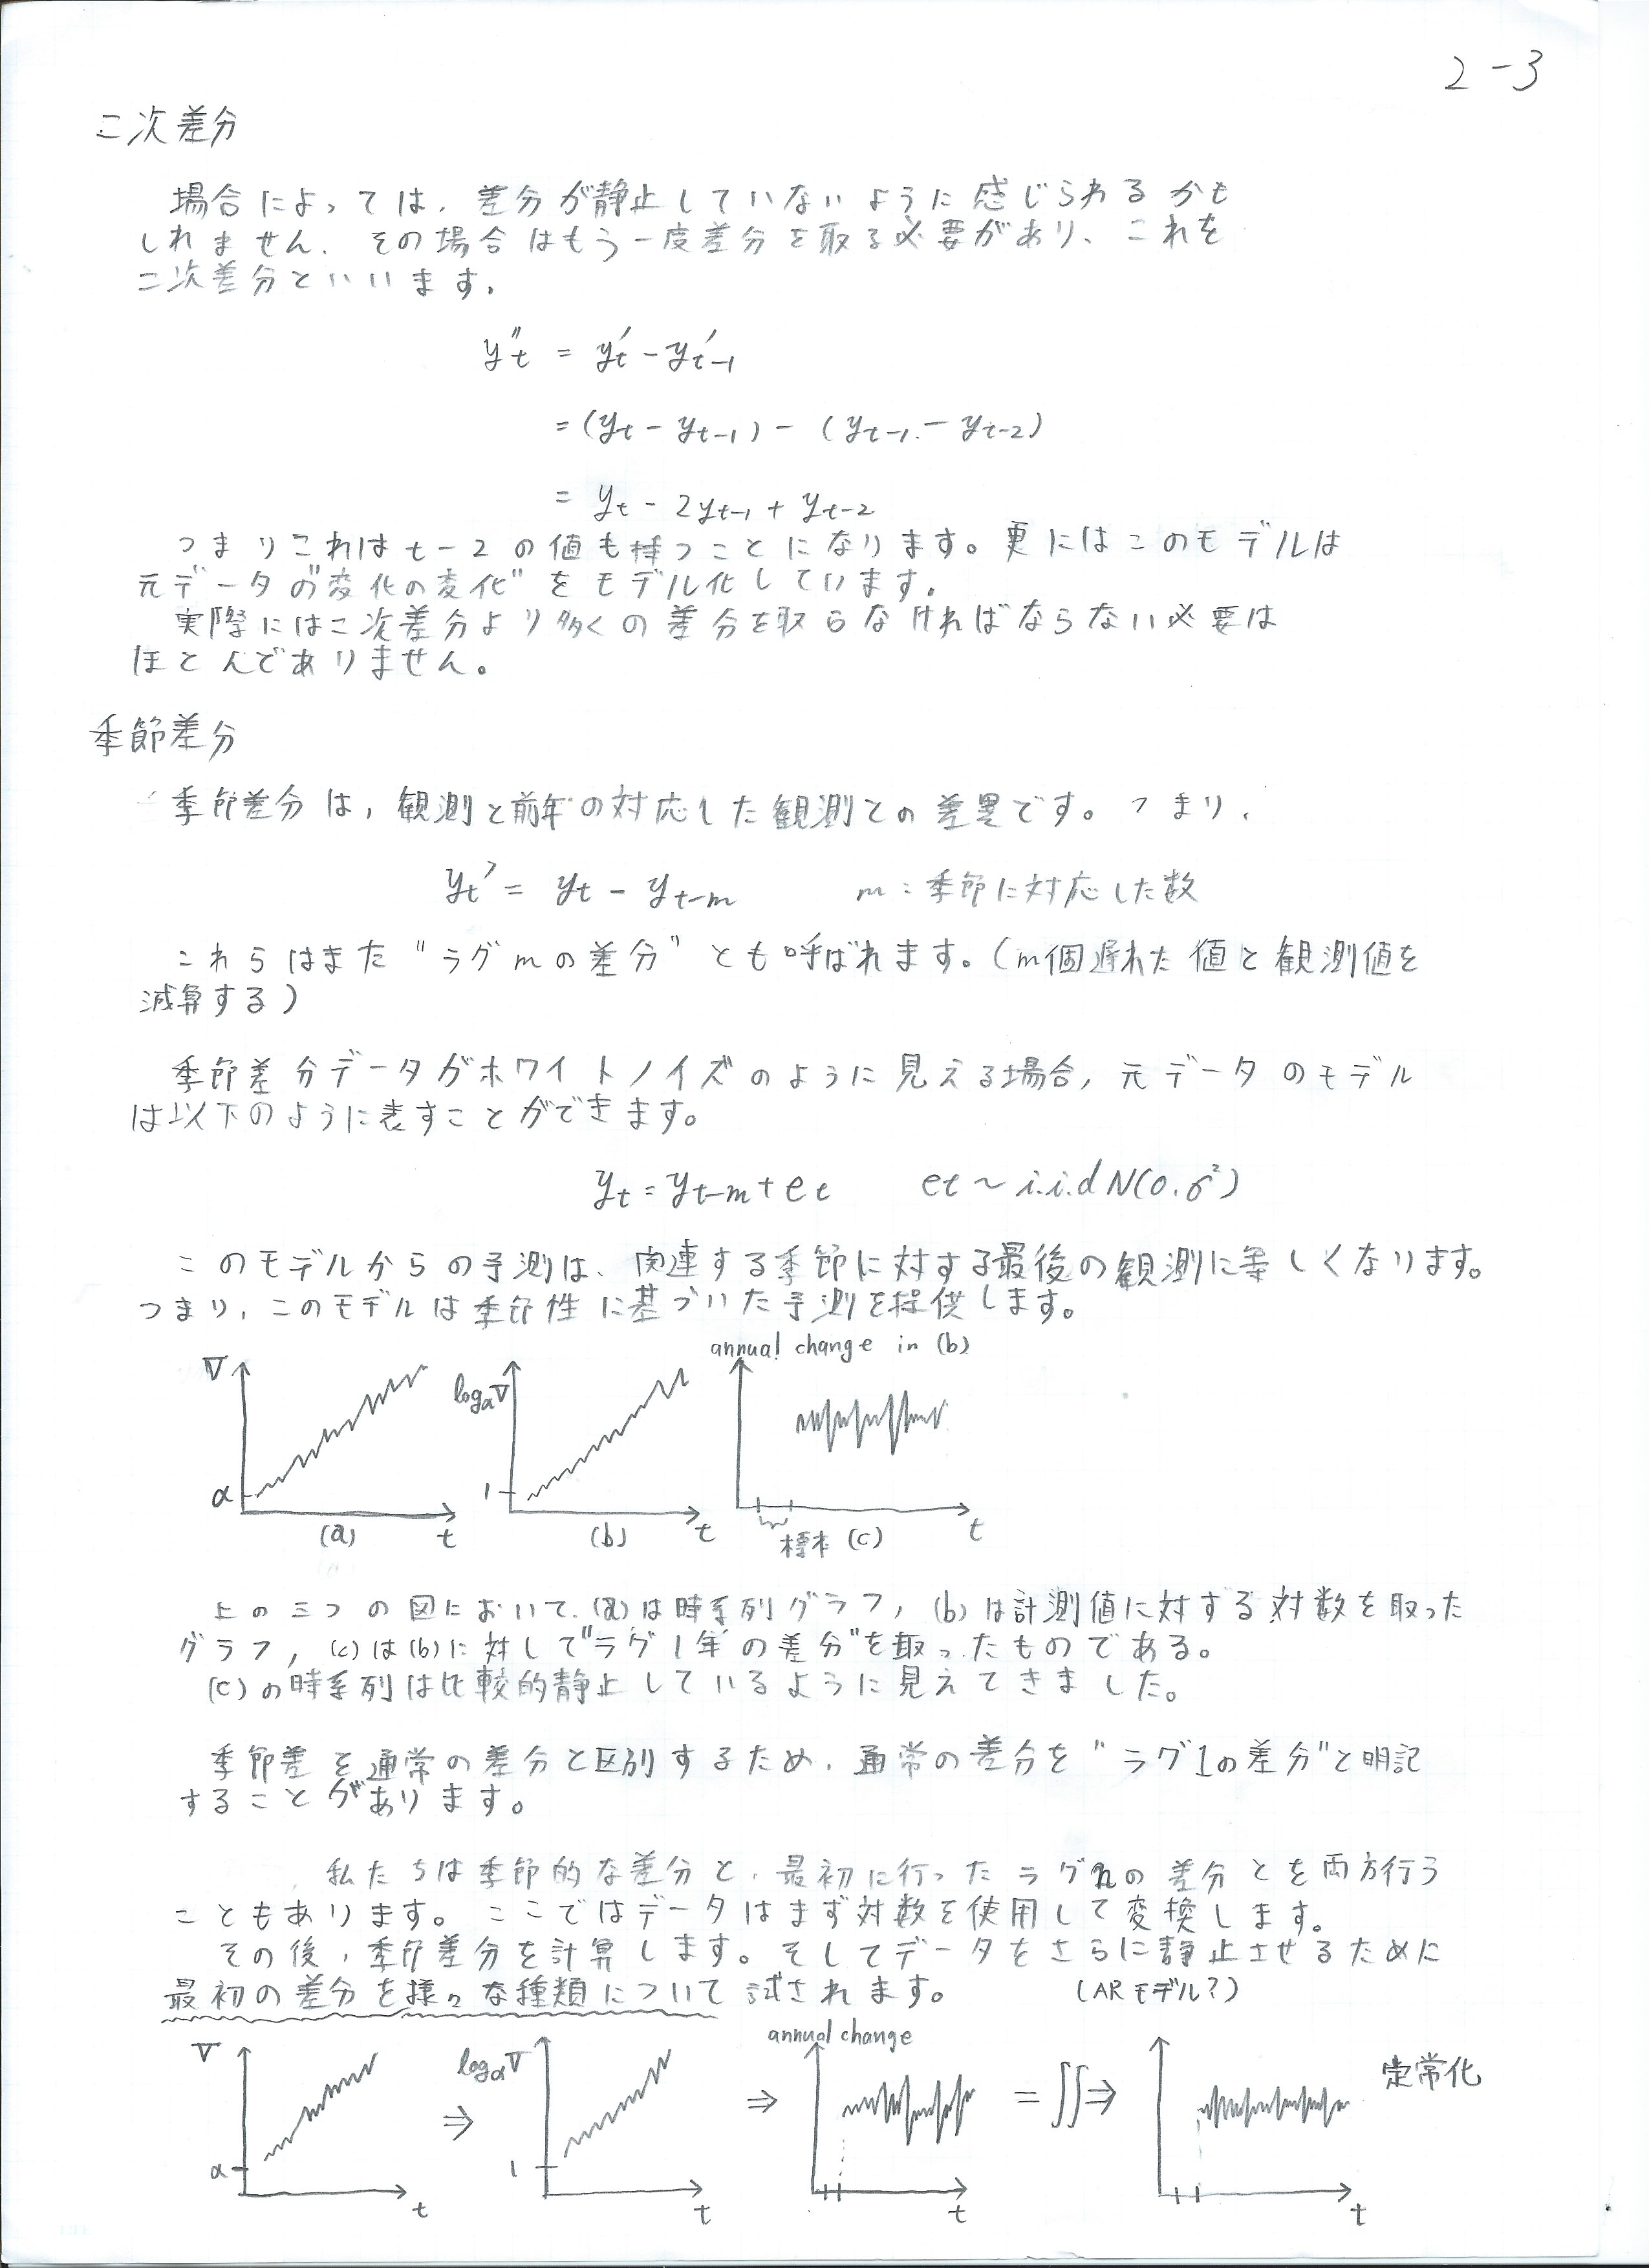 2-3
二次差分
場合によっては、差分が静止していないように感じられるかも
しれません、その場合はもう一度差分を取る必要があり、これを
二次差分といいます。
y''t = y't - y't-1
= (yt - yt-1) - (yt-1 - yt-2)
= yt - 2yt-1 + yt-2
つまりこれは t-2 の値も持つことになります。更にはこのモデルは
元データの"変化の変化"をモデル化しています。
実際には二次差分より多くの差分を取らなければならない必要は
ほとんでありません。
季節差分
季節差分は, 観測と前年の対応した観測との差異です。つまり、
yt' = yt - yt-m m:季節に対応した数
これらはまた"ラグmの差分"とも呼ばれます。(m個遅れた値と観測値を
減算する)
季節差分データがホワイトノイズのように見える場合, 元データのモデル
は以下のように表すことができます。
yt = yt-m + et et ~ i.i.d N(0,σ²)
このモデルからの予測は、関連する季節に対する最後の観測に等しくなります。
つまり、このモデルは季節性に基づいた予測を提供します。
annual change in (b)
V logαV
α 1
(a) t (b) t 標本 (c) t
上の三つの図において、(a)は時系列グラフ, (b)は計測値に対する対数を取った
グラフ, (c)は(b)に対して"ラグ1年の差分"を取ったものである。
(c)の時系列は比較的静止しているように見えてきました。
季節差を通常の差分と区別するため、通常の差分を"ラグ1の差分"と明記
することがあります。
私たちは季節的な差分と、最初に行ったラグnの差分とを両方行う
こともあります。ここではデータはまず対数を使用して変換します。
その後、季節差分を計算します。そしてデータをさらに静止させるために
最初の差分を様々な種類について試されます。 (ARモデル?)
V logαV annual change 定常化
⇒ ⇒ = ∬⇒
α 1
t t t t